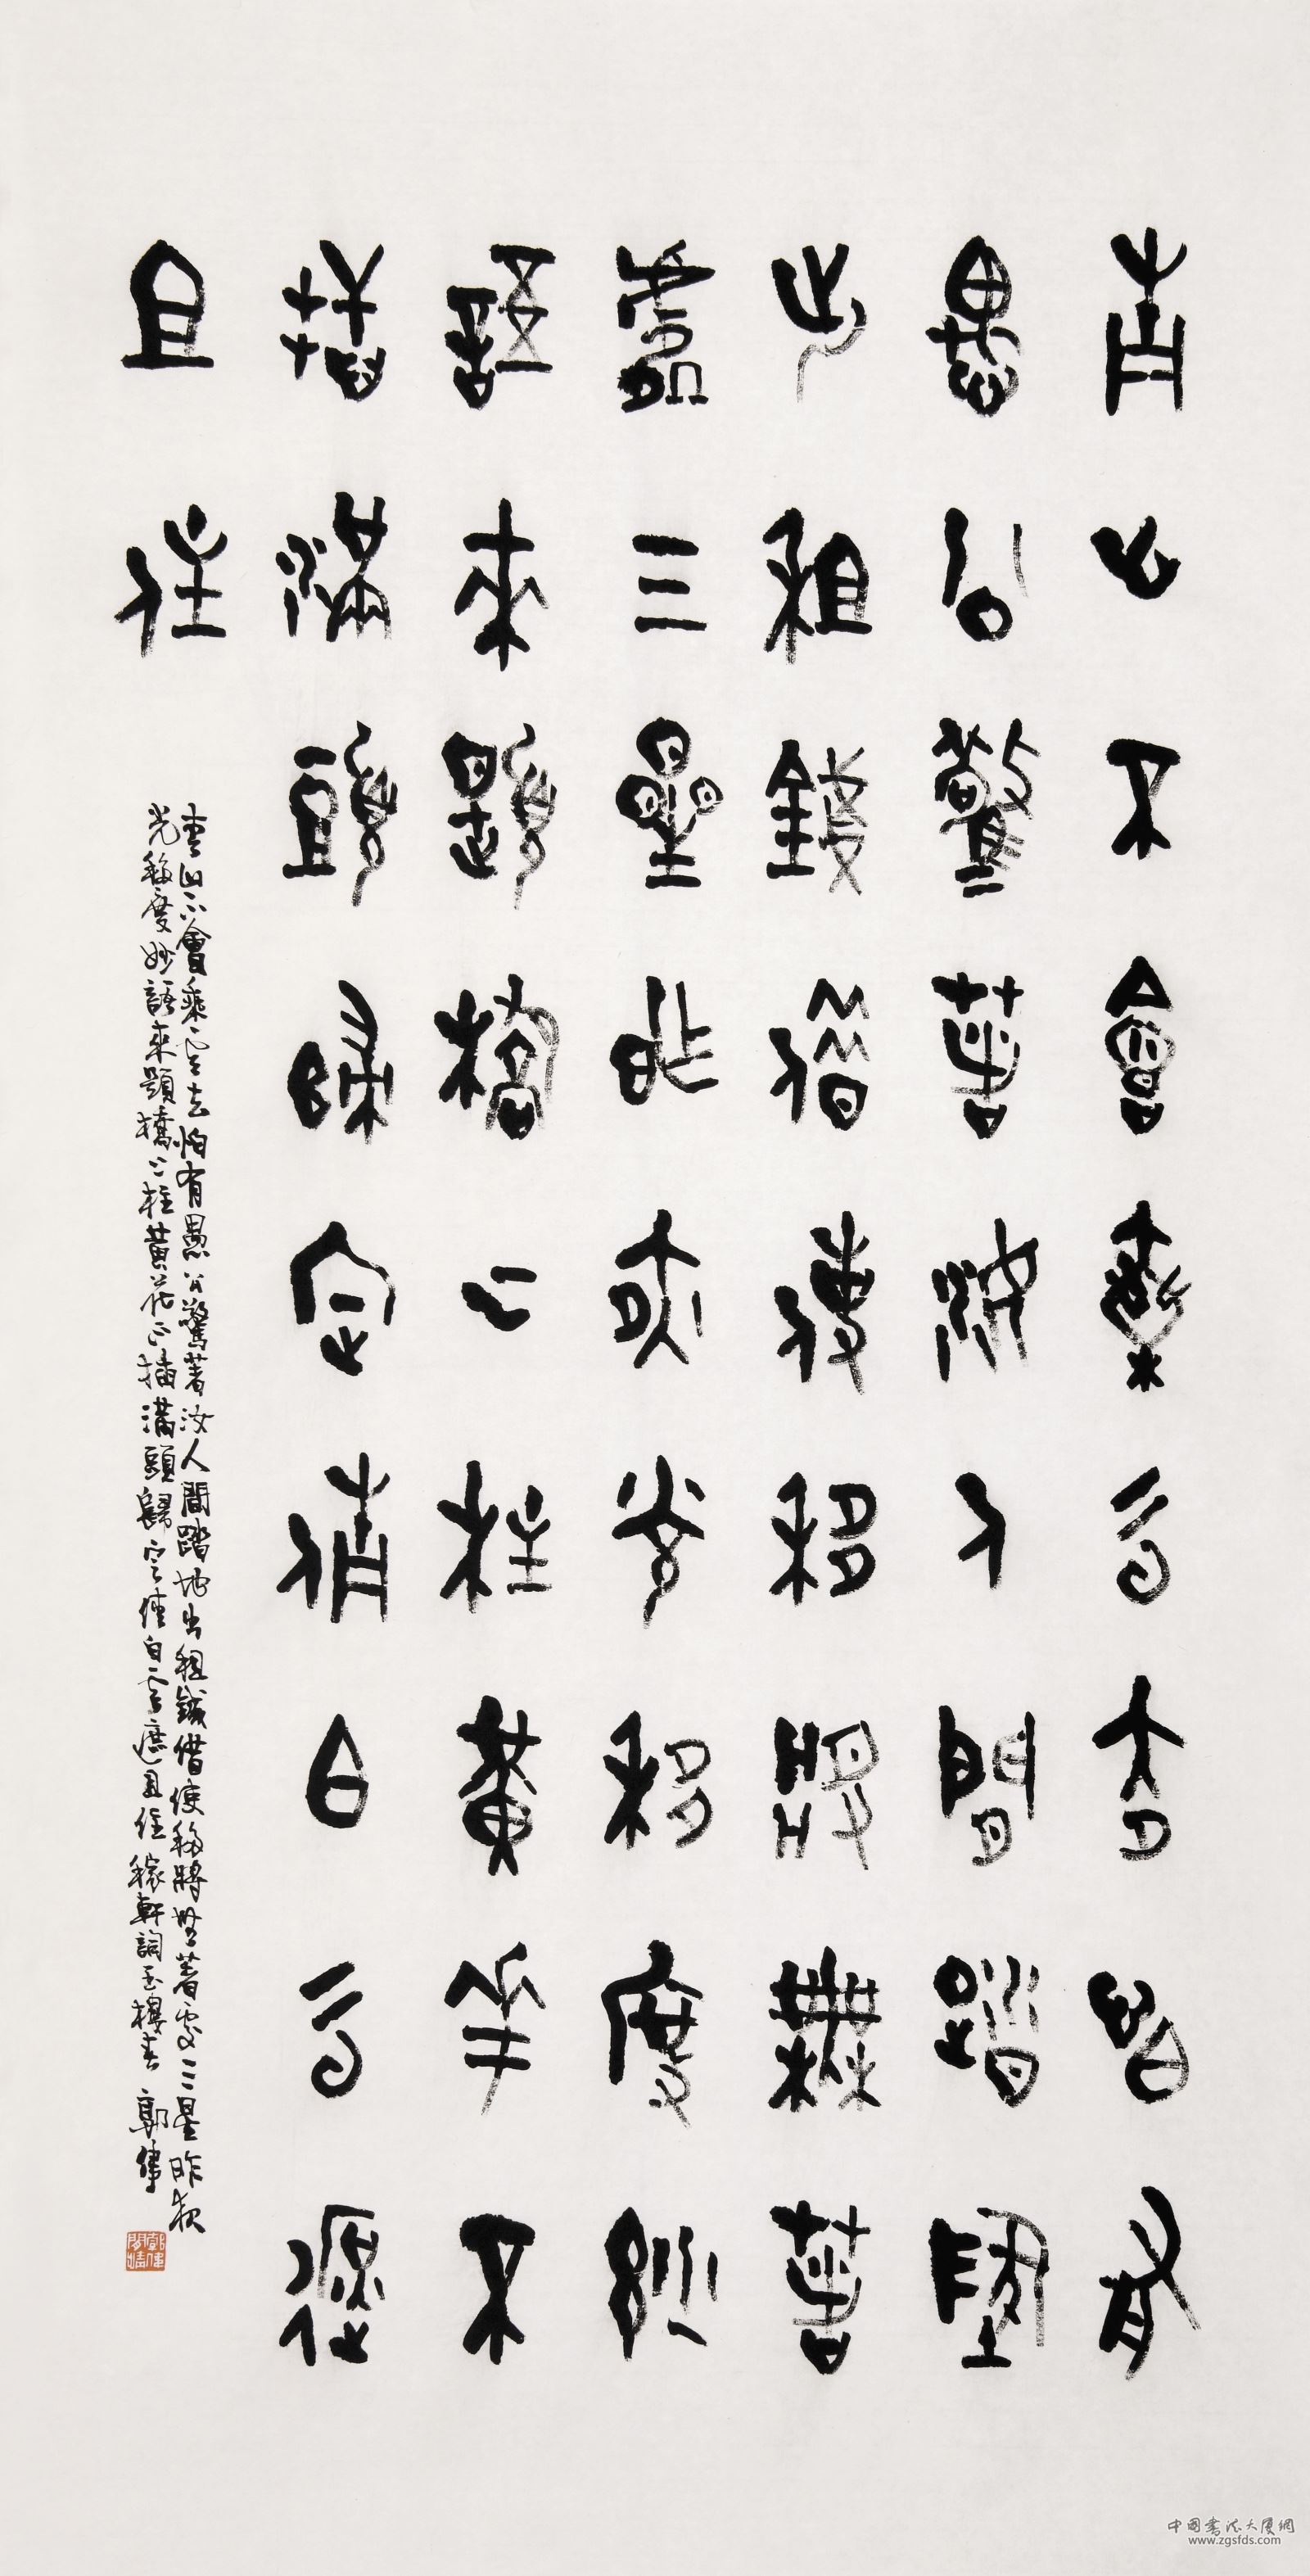 青山不會乘雲去怕有
愚公驚著汝人間踏地
出租錢借使移將無著
處三星昨夜光移度妙
語來題橋上柱黃花不
插滿頭歸定倩白雲遮
且住
青山不會乘雲去怕有愚公驚著汝人間踏地出租錢借使移將無著處三星昨夜
光移度妙語來題橋上柱黃花不插滿頭歸定倩白雲遮且住稼軒詞玉樓春 郭偉
中国书法大厦網
www.zgsfds.com